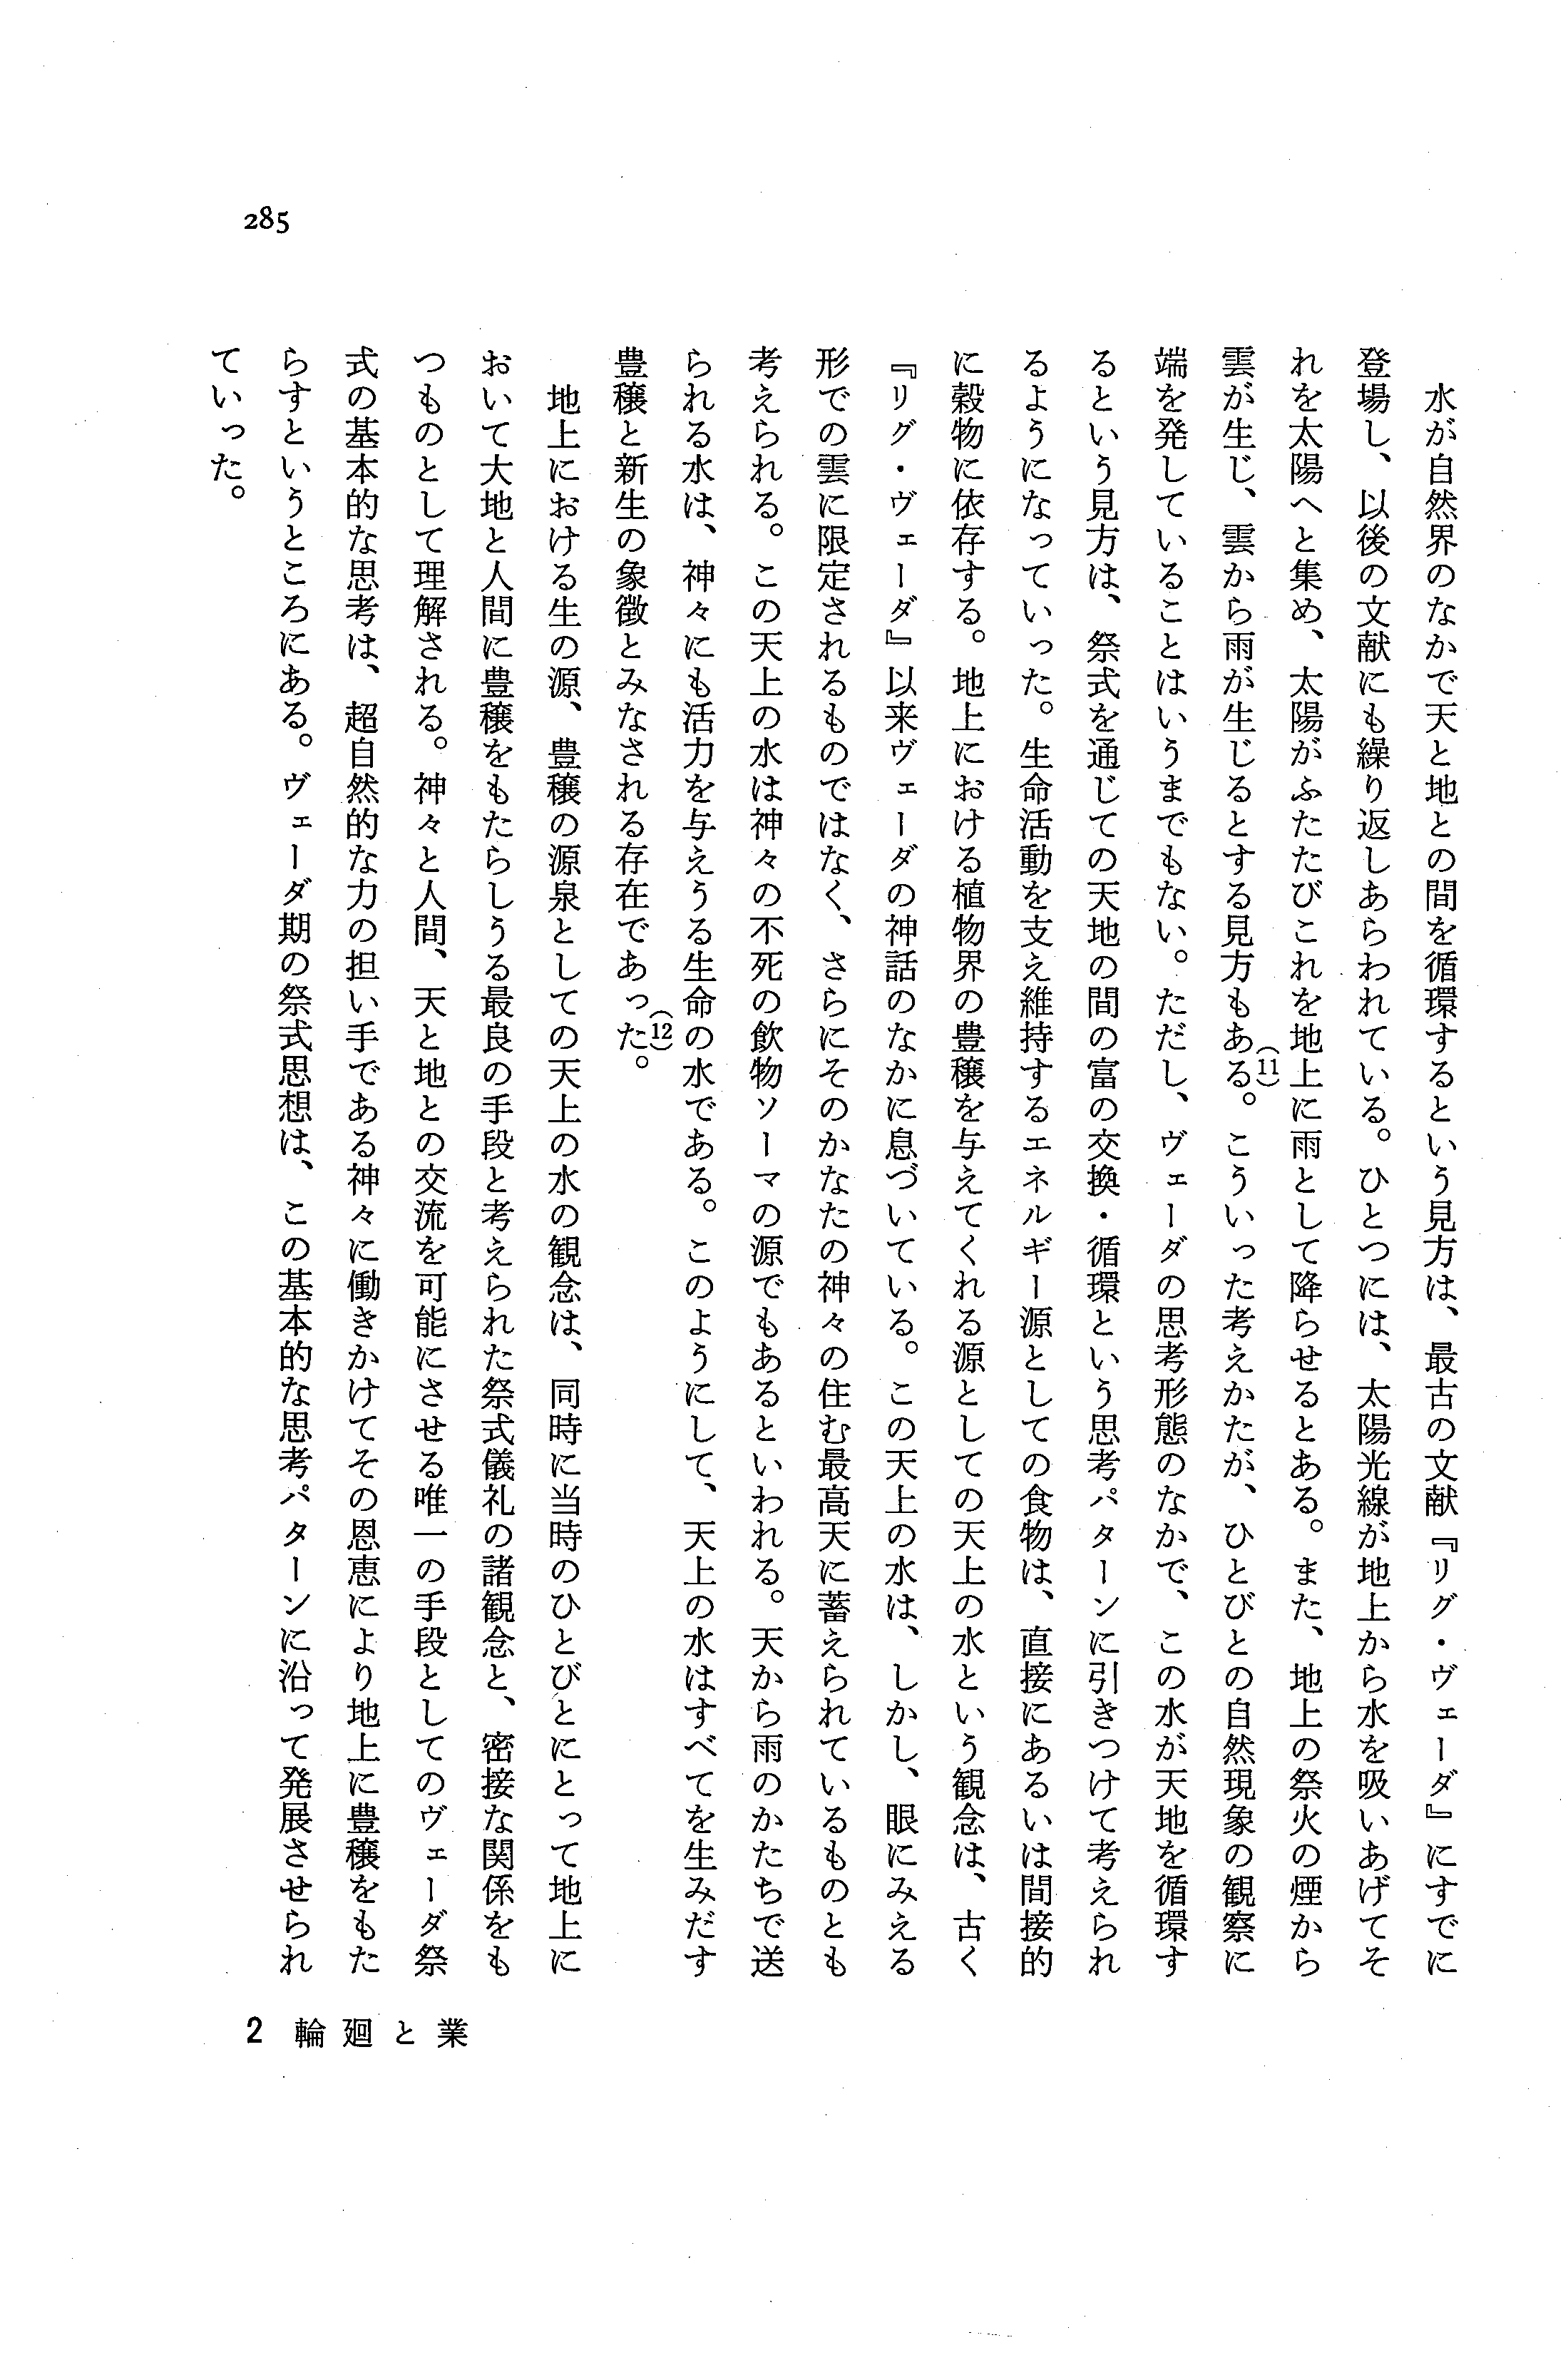 285
水が自然界のなかで天と地との間を循環するという見方は、最古の文献『リグ・ヴェーダ』にすでに
登場し、以後の文献にも繰り返しあらわれている。ひとつには、太陽光線が地上から水を吸いあげてそ
れを太陽へと集め、太陽がふたたびこれを地上に雨として降らせるとある。また、地上の祭火の煙から
雲が生じ、雲から雨が生じるとする見方もある(11)。こういった考えかたが、ひとびとの自然現象の観察に
端を発していることはいうまでもない。ただし、ヴェーダの思考形態のなかで、この水が天地を循環す
るという見方は、祭式を通じての天地の間の富の交換・循環という思考パターンに引きつけて考えられ
るようになっていった。生命活動を支え維持するエネルギー源としての食物は、直接にあるいは間接的
に穀物に依存する。地上における植物界の豊穣を与えてくれる源としての天上の水という観念は、古く
『リグ・ヴェーダ』以来ヴェーダの神話のなかに息づいている。この天上の水は、しかし、眼にみえる
形での雲に限定されるものではなく、さらにそのかなたの神々の住む最高天に蓄えられているものとも
考えられる。この天上の水は神々の不死の飲物ソーマの源でもあるといわれる。天から雨のかたちで送
られる水は、神々にも活力を与えうる生命の水である。このようにして、天上の水はすべてを生みだす
豊穣と新生の象徴とみなされる存在であった(12)。
地上における生の源、豊穣の源泉としての天上の水の観念は、同時に当時のひとびとにとって地上に
おいて大地と人間に豊穣をもたらしうる最良の手段と考えられた祭式儀礼の諸観念と、密接な関係をも
つものとして理解される。神々と人間、天と地との交流を可能にさせる唯一の手段としてのヴェーダ祭
式の基本的な思考は、超自然的な力の担い手である神々に働きかけてその恩恵により地上に豊穣をもた
らすというところにある。ヴェーダ期の祭式思想は、この基本的な思考パターンに沿って発展させられ
ていった。
2 輪廻と業